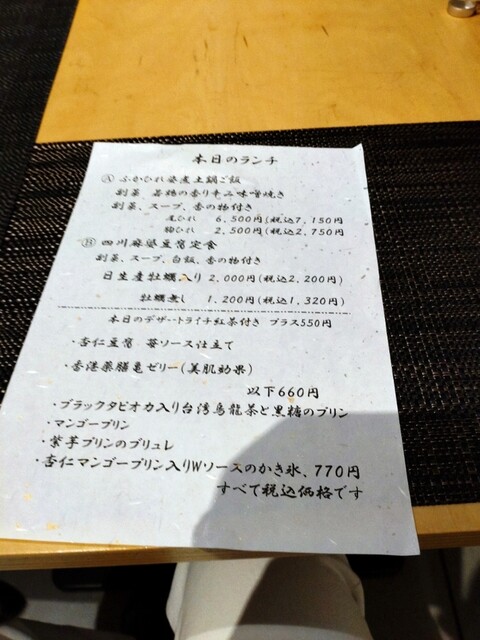 本日のランチ
Ⓐ ふかひれ姿煮土鍋ご飯
副菜 若鶏の香り辛み味噌焼き
副菜、スープ、香の物付き
尾ひれ 6,500円(税込7,150円
胸ひれ 2,500円(税込2,750円
Ⓑ 四川麻婆豆腐定食
副菜、スープ、白飯、香の物付き
日生産牡蠣入り 2,000円(税込2,200円)
牡蠣無し 1,200円(税込1,320円)
本日のデザートライチ紅茶付き プラス550円
・杏仁豆腐 苺ソース仕立て
・香港薬膳亀ゼリー(美肌効果)
以下660円
・ブラックタピオカ入り台湾烏龍茶と黒糖のプリン
・マンゴープリン
・紫芋プリンのブリュレ
・杏仁マンゴープリン入りWソースのかき氷、770円
すべて税込価格です